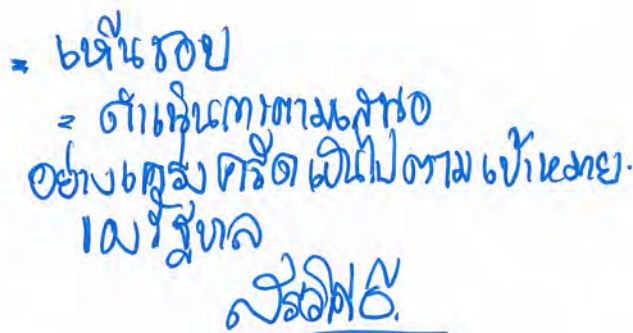 = เห็นชอบ
= ดำเนินการตามเสนอ
อย่างเคร่งครัด เป็นไปตาม เป้าหมาย.
รัฐบาล